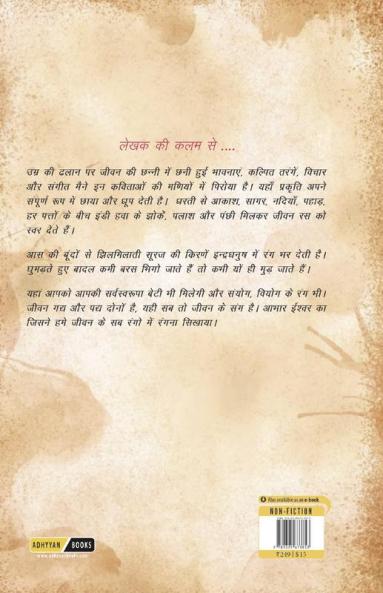 लेखक की कलम से ....
उम्र की ढलान पर जीवन की छन्नी में छनी हुई भावनाएं, कल्पित तरंगें, विचार
और संगीत मैने इन कविताओं की मणियों में पिरोया है। यहाँ प्रकृति अपने
संपूर्ण रूप में छाया और धूप देती है। धरती से आकाश, सागर, नदियाँ, पहाड़,
हर पत्तों के बीच इंडी हवा के झोंके, पलाश और पंछी मिलकर जीवन रस को
स्वर देते हैं।
आस की बूंदों से झिलमिलाती सूरज की किरणें इन्द्रधनुष में रंग भर देती है।
घुमड़ते हुए बादल कभी बरस भिगो जाते हैं तो कभी यों ही मुड़ जाते हैं।
यहां आपको आपकी सर्वस्वरूपा बेटी भी मिलेगी और संयोग, वियोग के रंग भी।
जीवन गद्य और पद्य दोनों है, यही सब तो जीवन के संग है। आभार ईश्वर का
जिसने हमे जीवन के सब रंगो में रंगना सिखाया।
Also available as an e-book
NON-FICTION
ADHYYAN BOOKS
www.adhyyanbooks.com
₹249 | $15